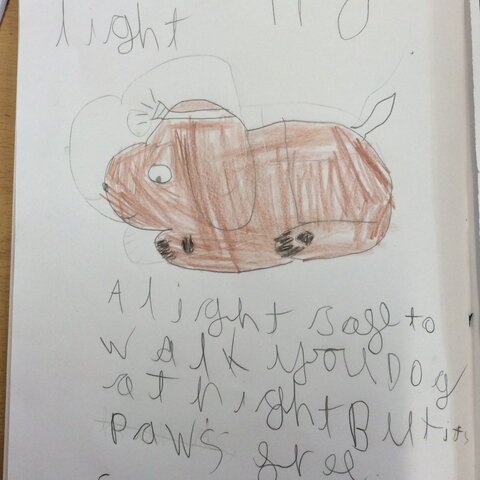 light
A light safe to
walk you Dog
at night But its
paws are